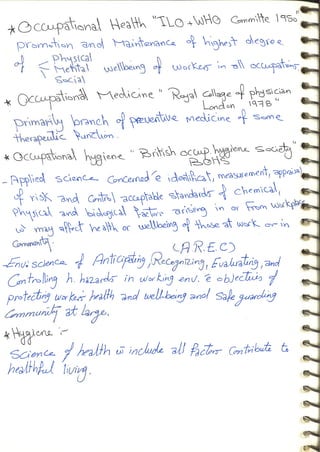 * Occupational Health "ILO + WHO Committe 1950"
promotion and Maintenance of highest degree
of < physical
Mental wellbeing of workers in all occupations
Social
* Occupational Medicine " Royal Collage of physician
London 1978 "
primarily branch of preventive medicine of some
therapeutic function.
* Occupational hygiene " British occup. hygiene Society"
BOHS
- Applied science Concerned identificat, measurement, appraisal
of risk and Control acceptable standards of chemical,
Physical and biological factors arising in or from workplace
w may affect health or wellbeing of those at work or in
Community.
(A.R.E.C)
- Env. science of Anticipating, Recognizing, Evaluating, and
Controlling h. hazards in working env. objectives of
protecting workers health and well-being and safe guarding
Community at large.
* Hygiene :-
Science of health w include all factors Contribute to
healthful living.